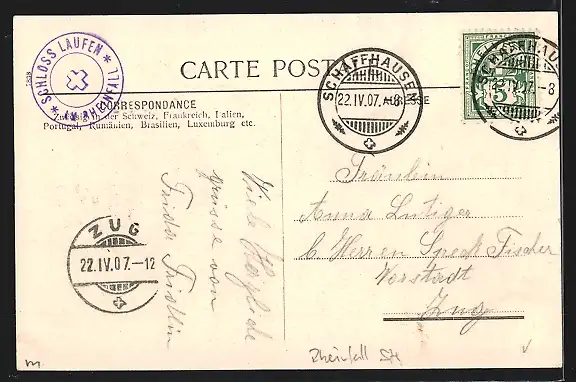 SCHLOSS LAUFEN
AM RHEINFALL
CARTE POSTALE
CORRESPONDANCE
Zulässig in der Schweiz, Frankreich, Italien,
Portugal, Rumänien, Brasilien, Luxemburg etc.
ADRESSE
SCHAFFHAUSEN
22.IV.07.-8
SCHAFFHAUSEN
22.IV.07.-8
5
ZUG
22.IV.07.-12
Viele herzliche
Grüsse von
Frida Fridlin
Fräulein
Anna Lutiger
b. Herren Speck Fischer
Vorstadt
Zug
Rheinfall SH
m.